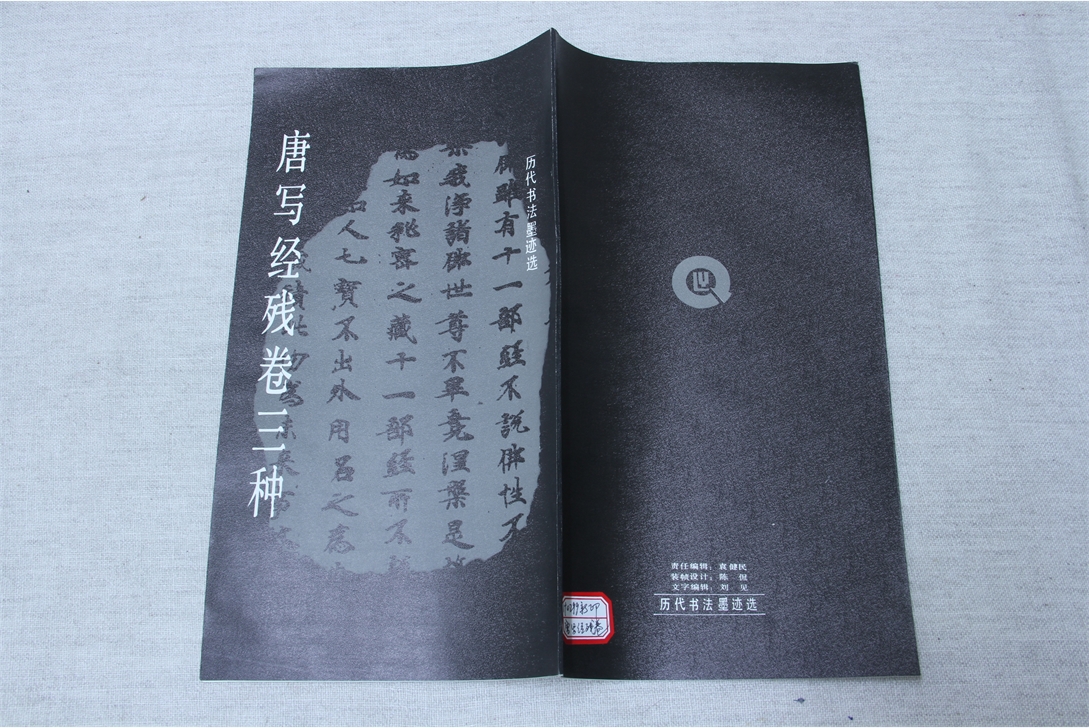 唐写经残卷三种
历代书法墨迹选
雖有十一部經不說佛性不
我淨諸佛世尊不畢竟涅槃是故
如来秘密之藏十一部經所不說
人七寶不出外用名之為
责任编辑：袁健民
装帧设计：陈 侃
文字编辑：刘 见
历代书法墨迹选